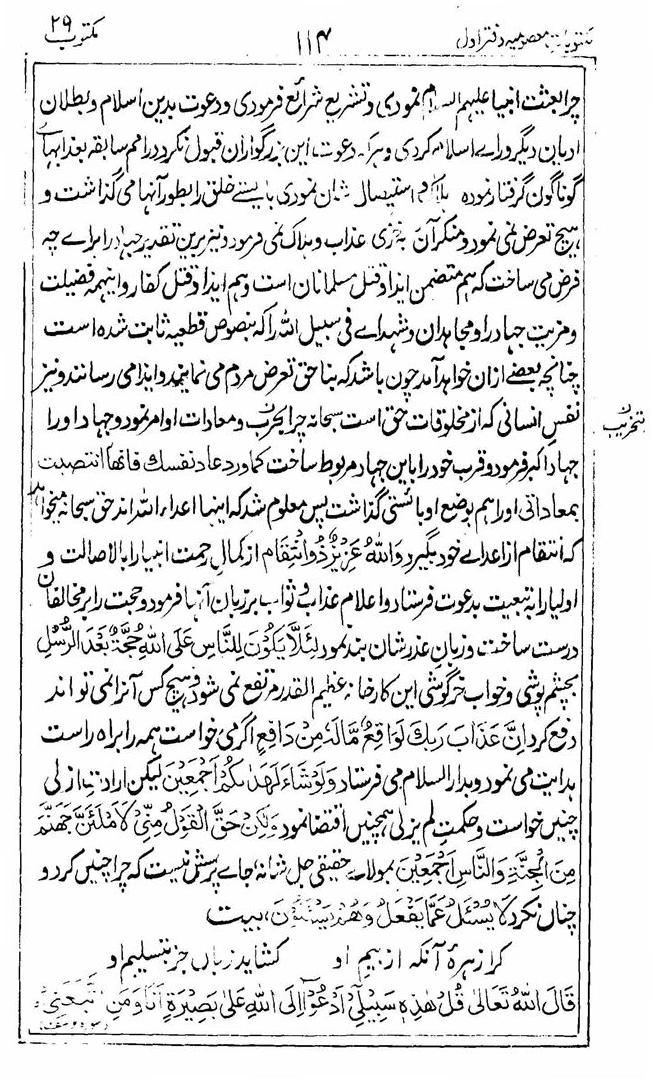 مکتوبات معصومیہ دفتر اول
۱۱۴
مکتوب ۲۹
چرا بعثت انبیا علیہم السلام نمودی و تشریع شرائع فرمودی و دعوت بدین اسلام و بطلان
ادیان دیگر ورائے اسلام کردی و ہر کہ دعوت این بزرگواران قبول نکرد در امم سابقہ بعذابہائے
گوناگون گرفتار نموده استیصال شان نمودی بایستے خلق را بطور آنہا می گذاشت و
ہیچ تعرض نمی نمود و منکر آن عذاب و ہلاک نمی فرمود و نیز برین تقدیر جہاد را برائے چہ
فرض می ساخت کہ ہم متضمن ایذا و قتل مسلمانان است و ہم ایذا و قتل کفار و اینہمہ فضیلت
و مزیت جہاد را و مجاہدان و شہدائے فی سبیل اللہ را کہ بنصوص قطعیہ ثابت شده است
چنانچہ بعضے ازان خواهد آمد چون باشد کہ بنا حق تعرض مردم می نمایند و ایذا می رسانند و نیز
نفس انسانی کہ از مخلوقات حق است سبحانہ چرا بحرب و معادات او امر نمود و جہاد او را
تخریب ن
جہاد اکبر فرمود و قرب خود را باین جہاد مربوط ساخت کما ورد عاد نفسك فانها انتصبت
بمعاداتی او را ہم بوضع او بائستی گذاشت پس معلوم شد کہ اینہا اعداء اللہ اند حق سبحانہ میخواہد
کہ انتقام از اعدائے خود بگیرد وَاللّٰهُ عَزِیْزٌ ذُو انْتِقَام از کمال رحمت انبیا را بالاصالت و
اولیا را بہ تبعیت بدعوت فرستاد و اعلام عذاب و ثواب بر زبان آنہا فرمود و حجت را بر مخالفان
درست ساخت و زبان عذر شان بند نمود لِئَلَّا یَکُوْنَ لِلنَّاسِ عَلَی اللّٰهِ حُجَّةٌ بَعْدَ الرُّسُلِ
بچشم پوشی و خواب خرگوشی این کارخانہ عظیم القدر مرتفع نمی شود و ہیچ کس آنرا نمی تواند
دفع کرد اِنَّ عَذَابَ رَبِّكَ لَوَاقِعٌ مَّا لَهٗ مِنْ دَافِعٍ اگر می خواست ہمہ را براه راست
ہدایت می نمود و بدار السلام می فرستاد وَلَوْ شَاءَ لَهَدٰىكُمْ اَجْمَعِیْنَ لیکن ارادت ازلی
چنین خواست و حکمت لم یزلی ہمچنین اقتضا نمود وَلٰكِنْ حَقَّ الْقَوْلُ مِنِّیْ لَاَمْلَئَنَّ جَهَنَّمَ
مِنَ الْجِنَّةِ وَالنَّاسِ اَجْمَعِیْنَ بمولائے حقیقی جل شانہ جائے پرسش نیست کہ چرا چنین کرد و
چنان نکرد لَا یُسْئَلُ عَمَّا یَفْعَلُ وَهُمْ یُسْئَلُوْنَ، بیت
کرا زہرۂ آنکہ از بیم او کشاید زبان جز بتسلیم او
قَالَ اللّٰهُ تَعَالٰی قُلْ هٰذِهٖ سَبِیْلِیْ اَدْعُوْا اِلَی اللّٰهِ عَلٰی بَصِیْرَةٍ اَنَا وَمَنِ اتَّبَعَنِیْ